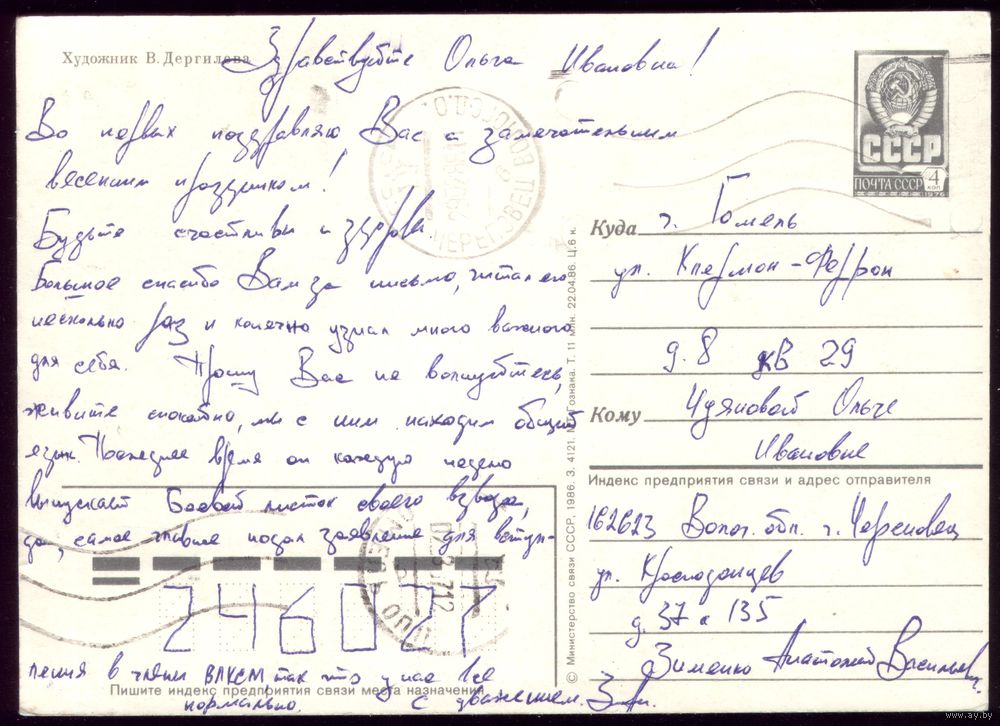 Художник В. Дергилева
Здравствуйте Ольга Ивановна!
Во первых поздравляю Вас с замечательным
весенним праздником!
Будьте счастливы и здоровы
Большое спасибо Вам за письмо, читал его
несколько раз и конечно узнал много важного
для себя. Прошу Вас не волнуйтесь,
живите спокойно, мы с ним находим общий
язык. Последнее время он каждую неделю
выпускает Боевой листок своего взвода,
да, самое главное подал заявление для вступ-
ления в члены ВЛКСМ так что у нас все
нормально. с уважением. З
ПОЧТА СССР
СССР
4 коп
1976
Куда г. Гомель
ул. Клермон-Феррон
д. 8 кв 29
Кому Чуяновой Ольге
Ивановне
Индекс предприятия связи и адрес отправителя
162623 Волог. обл. г. Череповец
ул. Краснодонцев
д. 37 135
Зименко Анатолий Васильевич
246027
Пишите индекс предприятия связи места назначения
© Министерство связи СССР, 1986. З. 4121. МПФ Гознака. Т. 11 млн. 22.04.86. Ц. 6 к.
www.ay.by